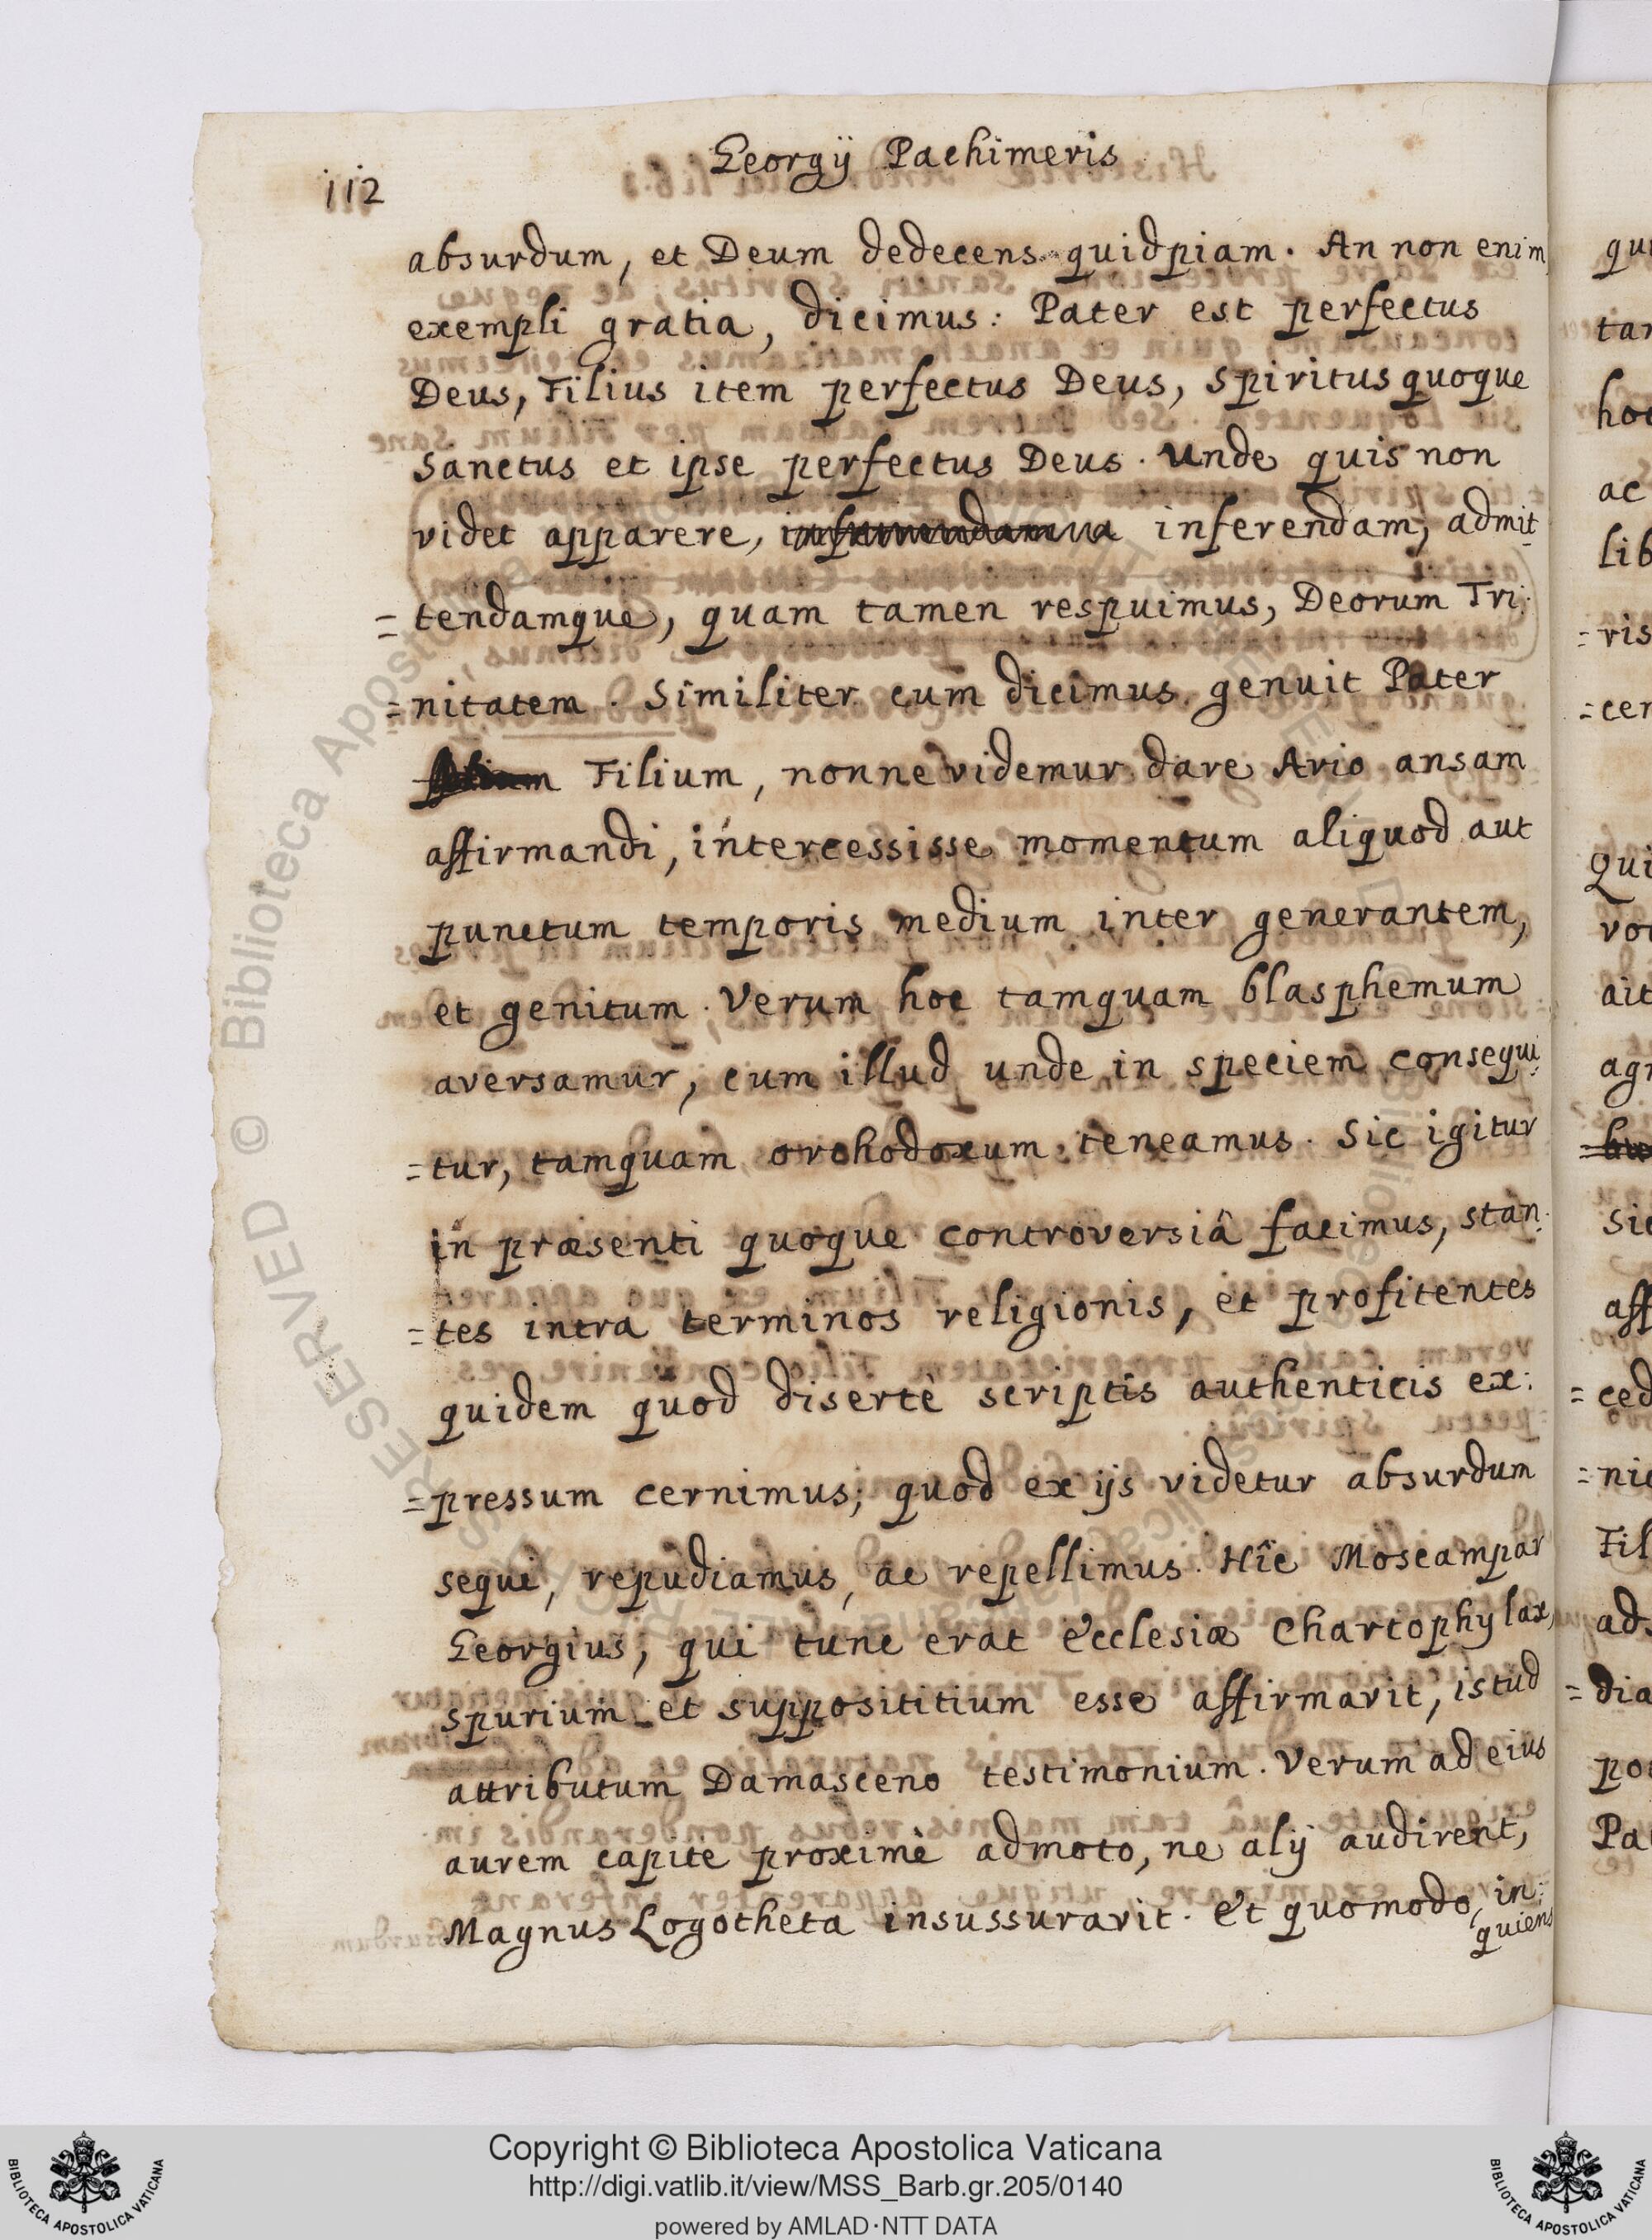 Georgÿ Pachimeris
112
absurdum, et Deum dedecens quidpiam. An non enim
exempli gratia, dicimus: Pater est perfectus
Deus, Filius item perfectus Deus, Spiritus quoque
Sanctus et ipse perfectus Deus. Unde quis non
videt apparere, inferendam, admit
=tendamque, quam tamen respuimus, Deorum Tri:
=nitatem. Similiter cum dicimus genuit Pater
Filium, nonne videmur dare Ario ansam
affirmandi, intercessisse momentum aliquod aut
punctum temporis medium inter generantem,
et genitum. Verum hoc tamquam blasphemum
aversamur, cum illud unde in speciem consequi:
=tur, tamquam orthodoxum teneamus. Sic igitur
in præsenti quoque controversiâ facimus, stan:
=tes intra terminos religionis, et profitentes
quidem quod disertè scriptis authenticis ex:
=pressum cernimus; quod ex ijs videtur absurdum
sequi, repudiamus, ac repellimus. Hîc Moscampar
Georgius, qui tunc erat Ecclesiæ Chartophylax,
spurium et supposititium esse affirmavit, istud
attributum Damasceno testimonium. Verum ad eius
aurem capite proximè admoto, ne alÿ audirent,
Magnus Logotheta insussuravit. Et quomodo, in:
quiens
qui
tan
hoc
ac
lib
=ris
=cer
Qui
voc
ait
agn
Sic
aff
=ced
=nic
Fil
ads
=dia
pot
Pat
Copyright © Biblioteca Apostolica Vaticana
http://digi.vatlib.it/view/MSS_Barb.gr.205/0140
powered by AMLAD·NTT DATA
BIBLIOTECA APOSTOLICA VATICANA
BIBLIOTECA APOSTOLICA VATICANA